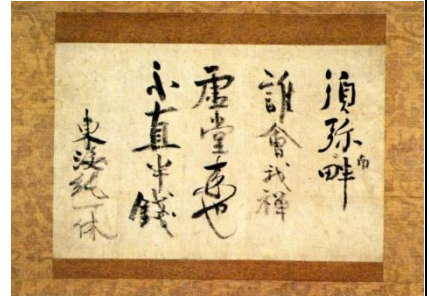 須弥南畔
誰會我禪
虚堂来也
不直半錢
東海純一休